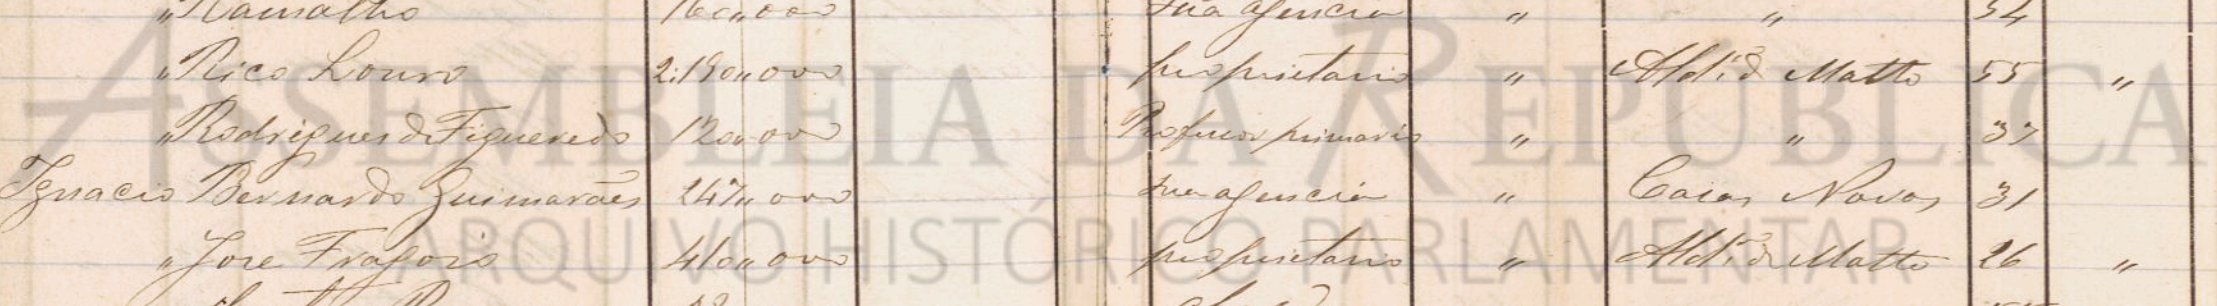 " Ramalho 160,,000 sua agencia " " 54
" Rico Louro 2:190,,000 proprietario " Ald.ª do Matto 55 "
" Rodrigues de Figueredo 120,,000 Professor primario " " 37
Ignacio Bernardo Guimarães 247,,000 sua agencia " Caias Novas 31
" Jose Fragoso 410,,000 proprietario " Ald.ª do Matto 26 "
ASSEMBLEIA DA REPÚBLICA
ARQUIVO HISTÓRICO PARLAMENTAR